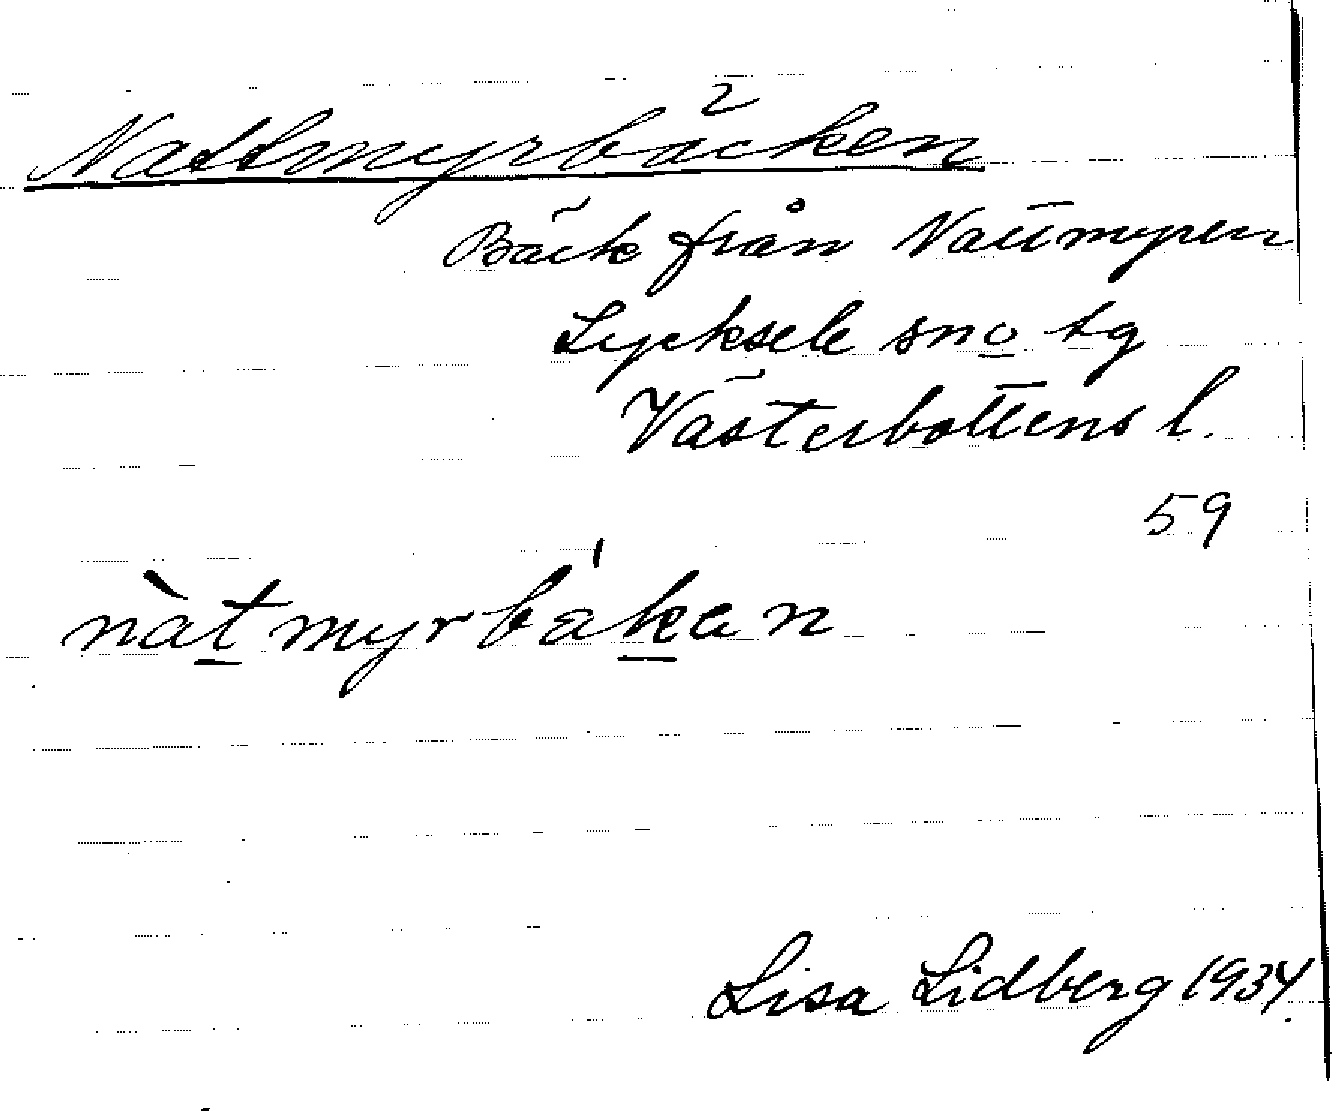 Nattmyrbäcken
Bäck från Nattmyren
Lycksele sn o tg
Västerbottens l.
59
nàt̲myrbák̲an
Lisa Lidberg 1934.